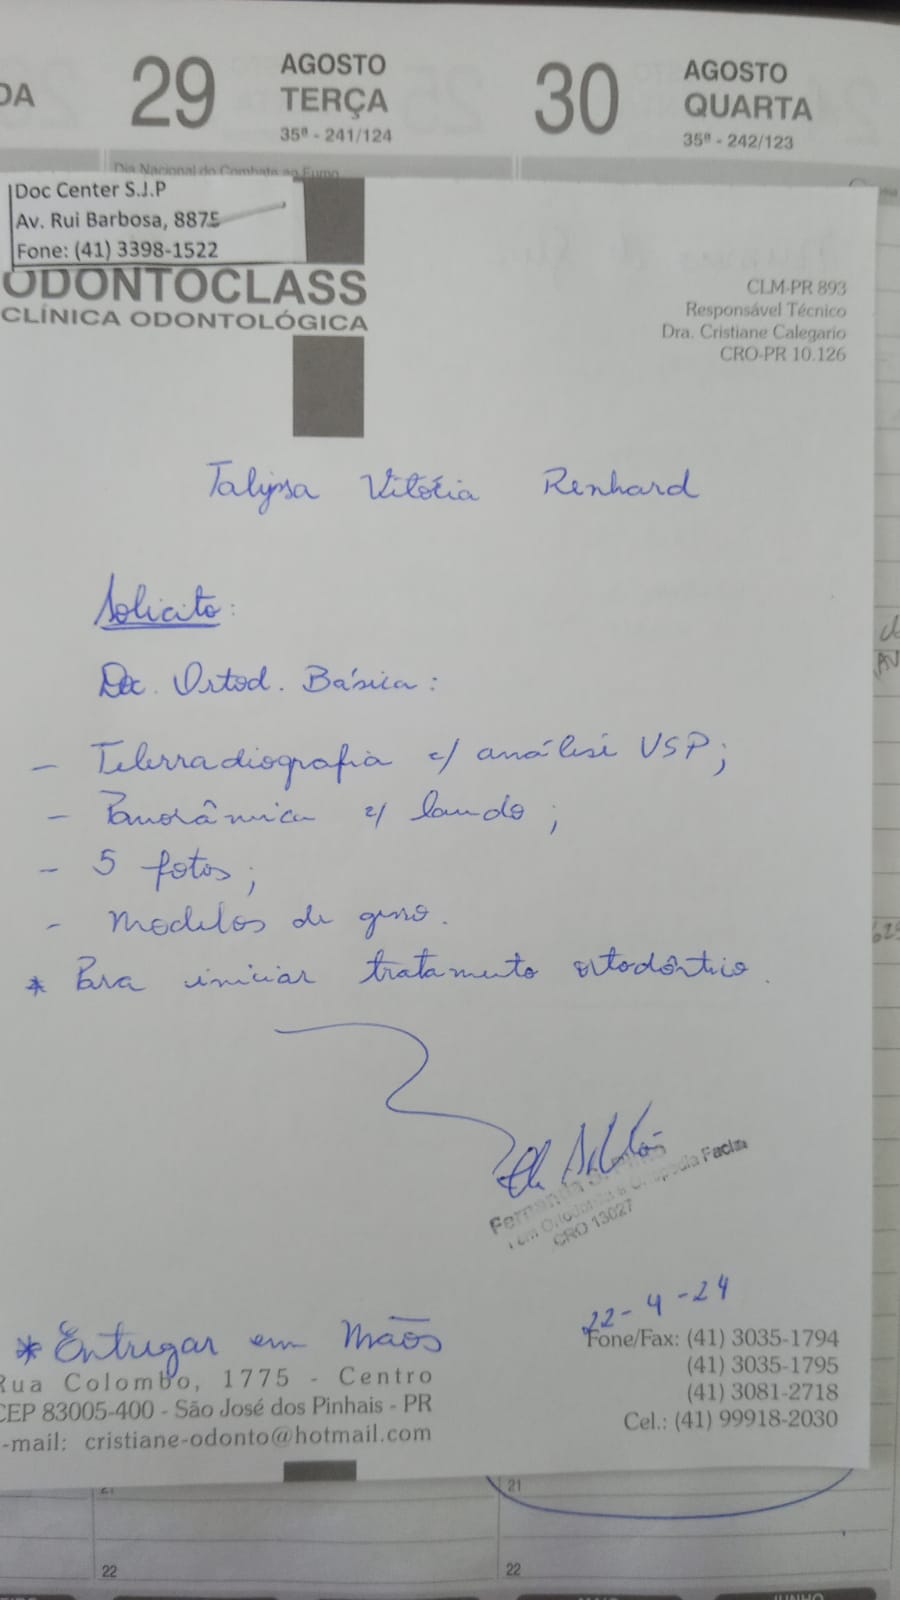 DA
29
AGOSTO
TERÇA
35ª - 241/124
30
AGOSTO
QUARTA
35ª - 242/123
Dia Nacional do Combate ao Fumo
Doc Center S.J.P
Av. Rui Barbosa, 8875
Fone: (41) 3398-1522
ODONTOCLASS
CLÍNICA ODONTOLÓGICA
CLM-PR 893
Responsável Técnico
Dra. Cristiane Calegario
CRO-PR 10.126
Talyssa Vitória Renhard
Solicito:
Doc. Ortod. Básica:
- Telerradiografia c/ análise USP;
- Panorâmica c/ laudo;
- 5 fotos;
- Modelos de gesso.
* Para iniciar tratamento ortodôntico.
Fernanda S.
Ortopedia Facial
CRO 13027
22-4-24
* Entregar em Mãos
Rua Colombo, 1775 - Centro
CEP 83005-400 - São José dos Pinhais - PR
e-mail: cristiane-odonto@hotmail.com
Fone/Fax: (41) 3035-1794
(41) 3035-1795
(41) 3081-2718
Cel.: (41) 99918-2030
21
21
22
22